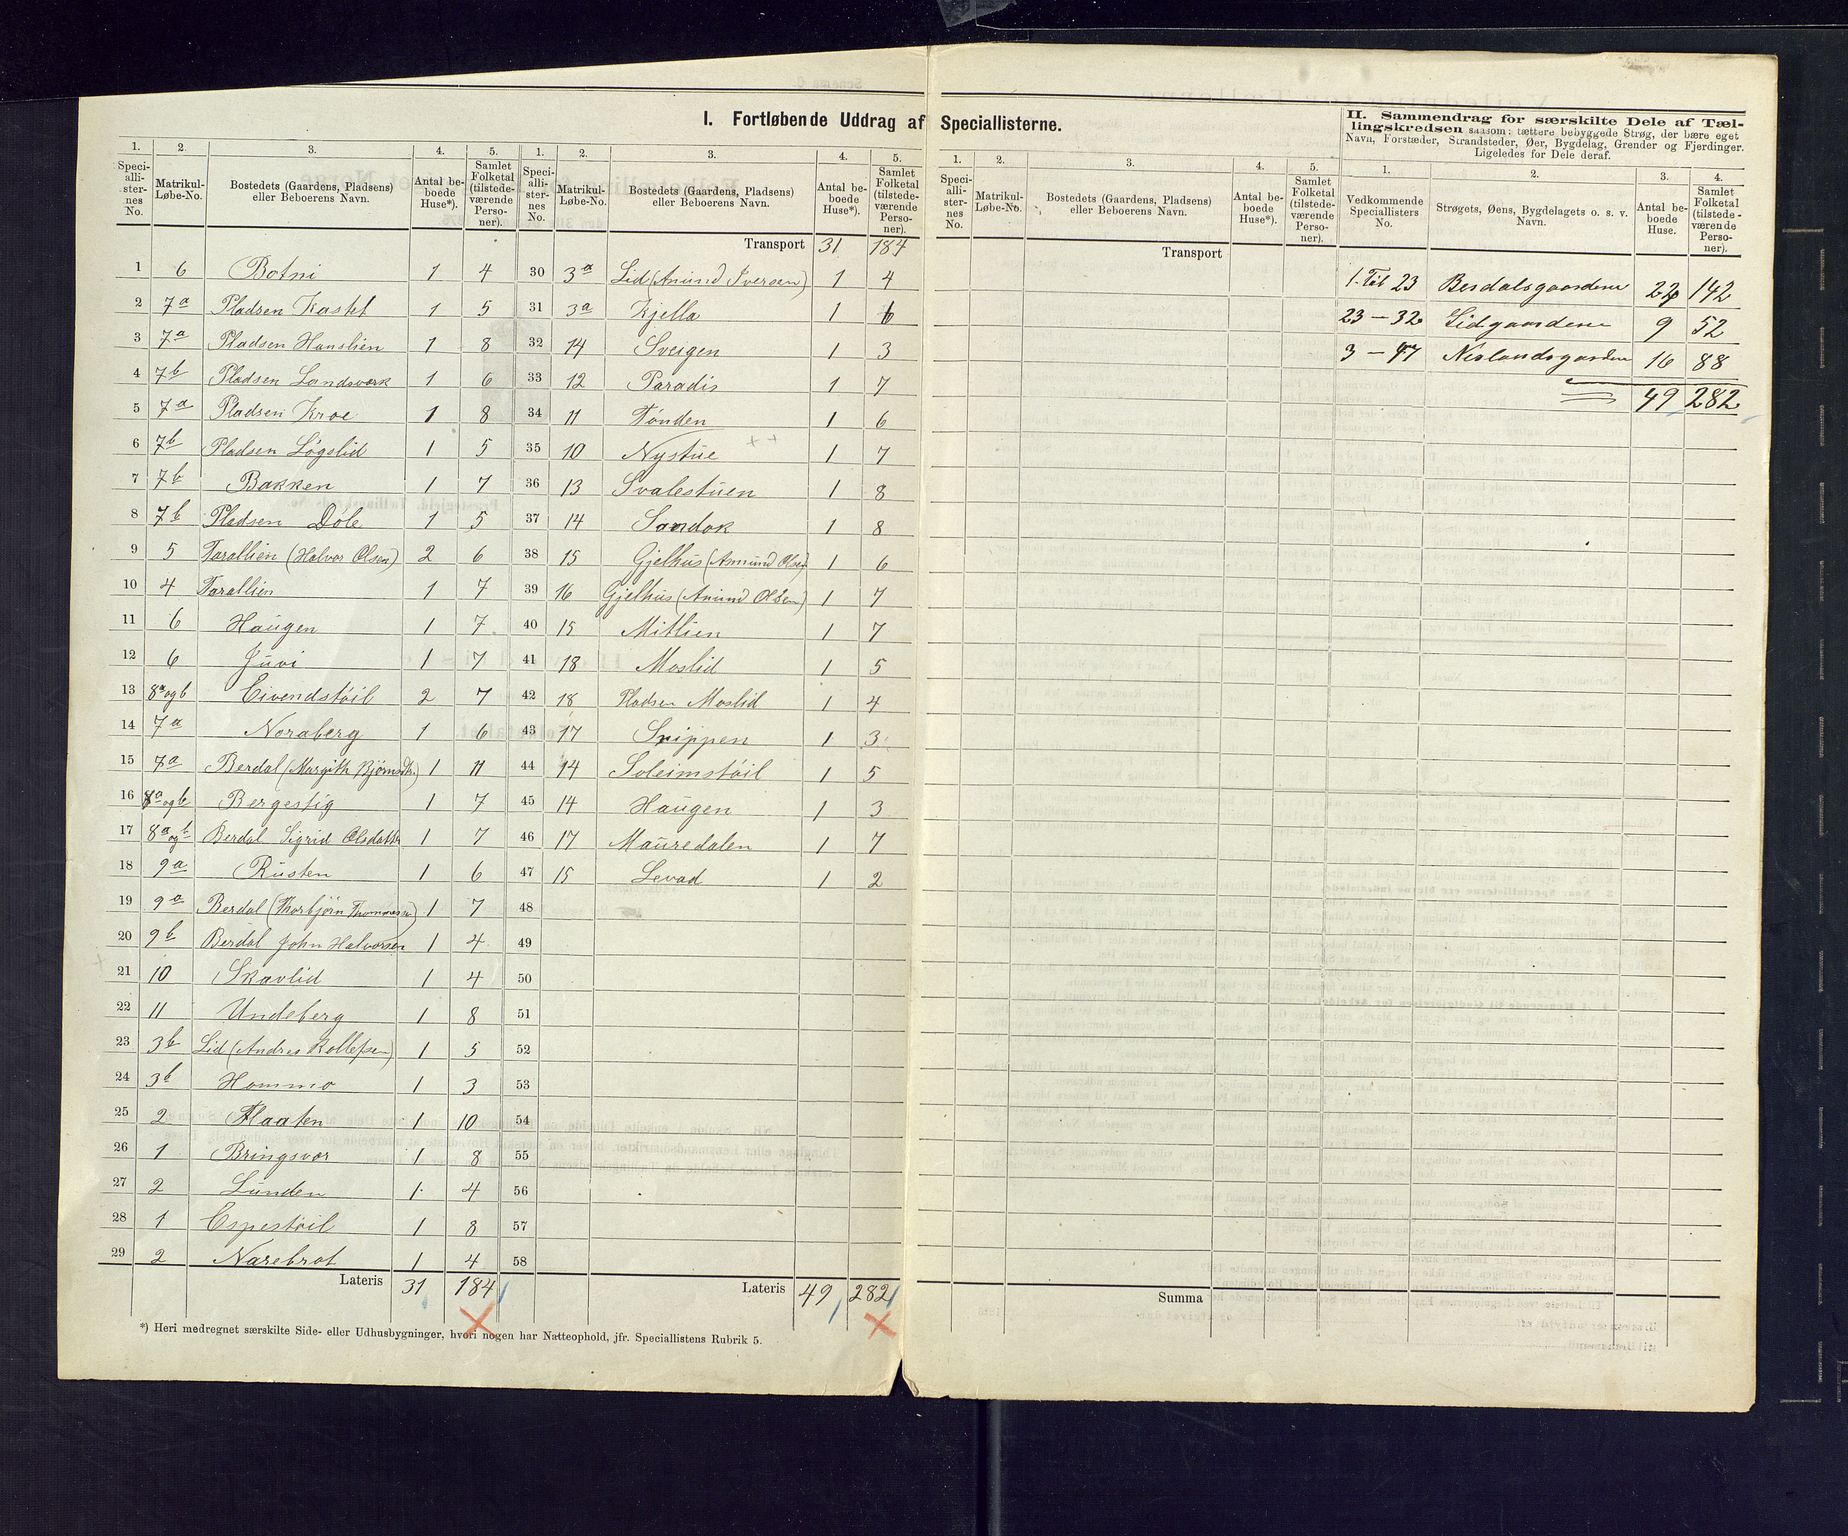 I. Fortløbende Uddrag af Speciallisterne.
II. Sammendrag for særskilte Dele af Tællingskredsen saasom: tættere bebyggede Strøg, der bære eget
Navn, Forstæder, Strandsteder, Øer, Bygdelag, Grender og Fjerdinger.
Ligeledes for Dele deraf.
1. 2. 3. 4. 5. 1. 2. 3. 4. 5. 1. 2. 3. 4. 5. 1. 2. 3. 4.
Speciallisternes No. Matrikul-Løbe-No. Bostedets (Gaardens, Pladsens) eller Beboerens Navn. Antal beboede Huse*). Samlet Folketal (tilstedeværende Personer).
Speciallisternes No. Matrikul-Løbe-No. Bostedets (Gaardens, Pladsens) eller Beboerens Navn. Antal beboede Huse*). Samlet Folketal (tilstedeværende Personer).
Speciallisternes No. Matrikul-Løbe-No. Bostedets (Gaardens, Pladsens) eller Beboerens Navn. Antal beboede Huse*). Samlet Folketal (tilstedeværende Personer).
Vedkommende Speciallisters No. Strøgets, Øens, Bygdelagets o. s. v. Navn. Antal beboede Huse. Samlet Folketal (tilstedeværende Personer).
1 6 Botni 1 4
2 7a Pladsen Kastet 1 5
3 7a Pladsen Hanslien 1 8
4 7b Pladsen Landsværk 1 6
5 7a Pladsen Kroe 1 8
6 7b Pladsen Løgslid 1 5
7 7b Bakken 1 7
8 7b Pladsen Døle 1 5
9 5 Tarallien (Halvor Olsen) 2 6
10 4 Tarallien 1 7
11 6 Haugen 1 7
12 6 Juvi 1 7
13 8a og b Eivendstøil 2 7
14 7a Noraberg 1 6
15 7a Berdal (Margith Bjørnsdt.) 1 11
16 8a og b Bergestig 1 7
17 8a og b Berdal Sigrid Olsdatter 1 7
18 9a Rusten 1 6
19 9a Berdal (Thorbjørn Thommesen) 1 7
20 9b Berdal John Halvorsen 1 4
21 10 Skavlid 1 4
22 11 Undeberg 1 8
23 3b Lid (Andres Rollefsen) 1 5
24 3b Hommo 1 3
25 2 Flaaten 1 10
26 1 Bringsvor 1 8
27 2 Lunden 1 4
28 1 Espestøil 1 8
29 2 Narebrot 1 4
Lateris 31 184
Transport 31 184
30 3a Lid (Anund Iversen) 1 4
31 3a Kjella 1 6
32 14 Sveigen 1 3
33 12 Paradis 1 7
34 11 Tønden 1 6
35 10 Nystue 1 7
36 13 Svalestuen 1 8
37 14 Sandok 1 8
38 15 Gjelhus (Anmund Olsen) 1 6
39 16 Gjelhus (Anund Olsen) 1 7
40 15 Mitlien 1 7
41 18 Moslid 1 5
42 18 Pladsen Moslid 1 4
43 17 Snippen 1 3
44 14 Soleimstøil 1 5
45 14 Haugen 1 3
46 17 Mauredalen 1 7
47 15 Levad 1 2
48
49
50
51
52
53
54
55
56
57
58
Lateris 49 282
Transport
Summa
1 Til 23 Berdalsgaardene 22 142
23 - 32 Lidgaardene 9 52
3 - 47 Neslandsgaardene 16 88
49 282
*) Heri medregnet særskilte Side- eller Udhusbygninger, hvori nogen har Natteophold, jfr. Speciallistens Rubrik 5.